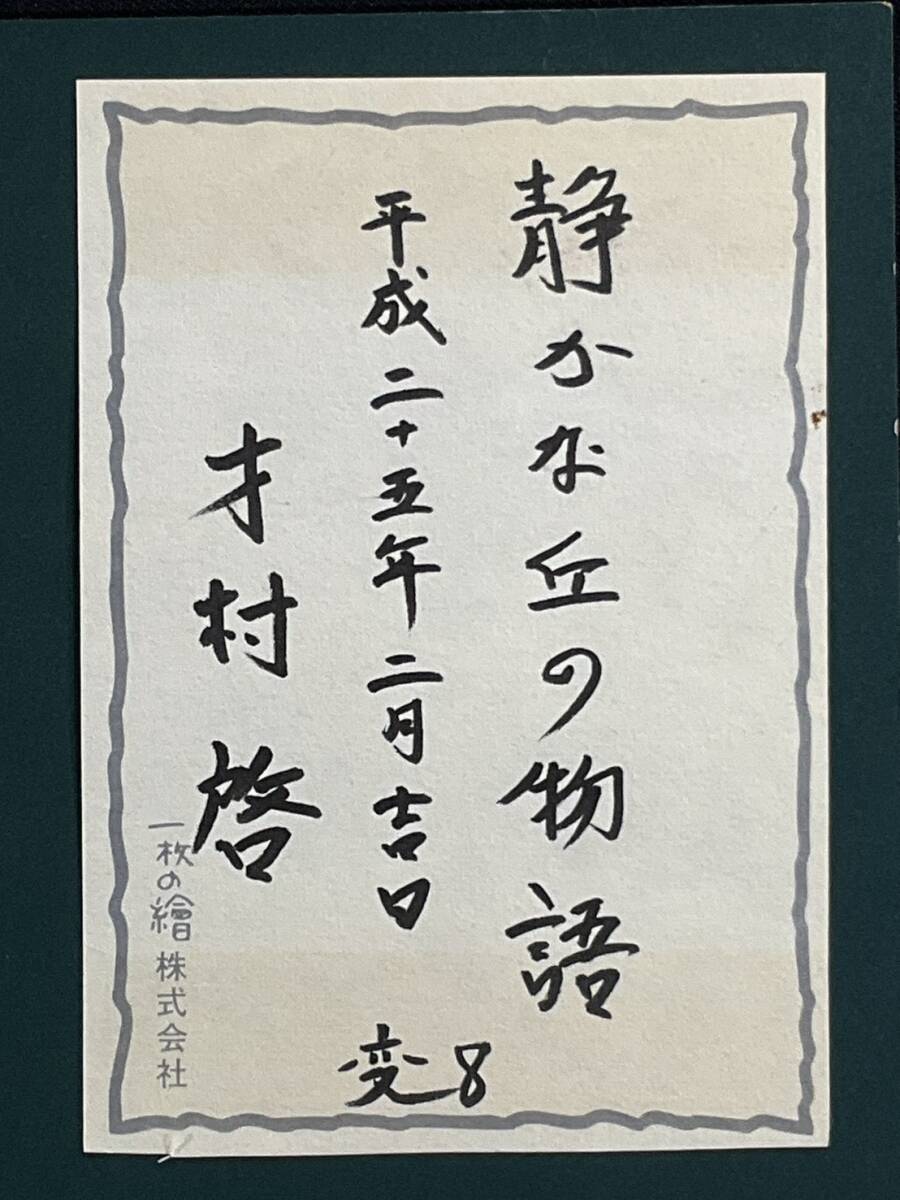 静かな丘の物語
平成二十五年二月吉日
才村啓
変8
一枚の繪株式会社